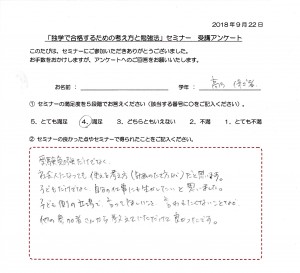 2018年9月22日
「独学で合格するための考え方と勉強法」セミナー 受講アンケート
このたびは、セミナーにご参加いただきありがとうございました。
お手数をおかけしますが、アンケートへのご回答をお願いいたします。
お名前：
① セミナーの満足度を５段階でお答えください（該当する番号に○をご記入ください）。
5．とても満足 4．満足 3．どちらともいえない 2．不満 1．とても不満
② セミナーの良かった点やセミナーで得られたことをご記入ください。
受験勉強だけでなく、
社会人になっても使える考え方（計画のたて方など）だと思います。
子どもだけでなく自分の仕事にも生かしていこうと思いました。
子ども側の立場で言ってほしいこと、言われたくないことなど
他の参加者さんから教えていただけて良かったです。